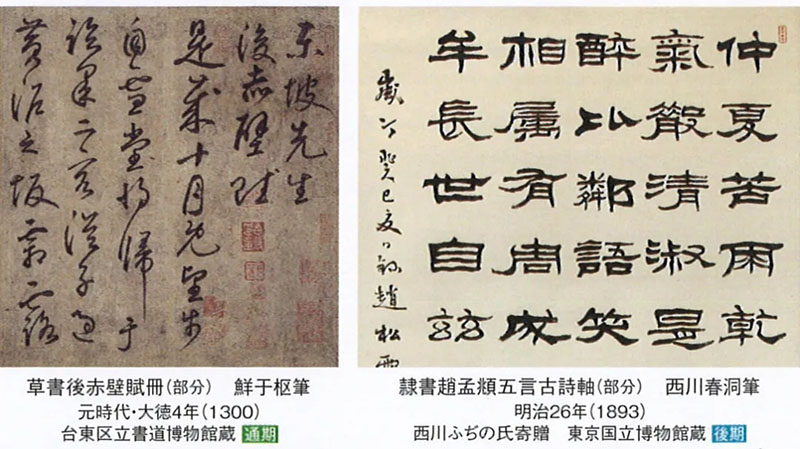 東坡先生
後赤壁賦
是歲十月之望步
自雪堂將歸于
臨皋二客從予過
黃泥之坂霜露
草書後赤壁賦冊(部分) 鮮于枢筆
元時代・大徳4年(1300)
台東区立書道博物館蔵 通期
仲夏苦雨乾
氣散清淑
醉比鄰語笑
相屬有周成
牟長世自茲
歲次癸巳夏日錄趙松雪
隷書趙孟頫五言古詩軸(部分) 西川春洞筆
明治26年(1893)
西川ふぢの氏寄贈 東京国立博物館蔵 後期